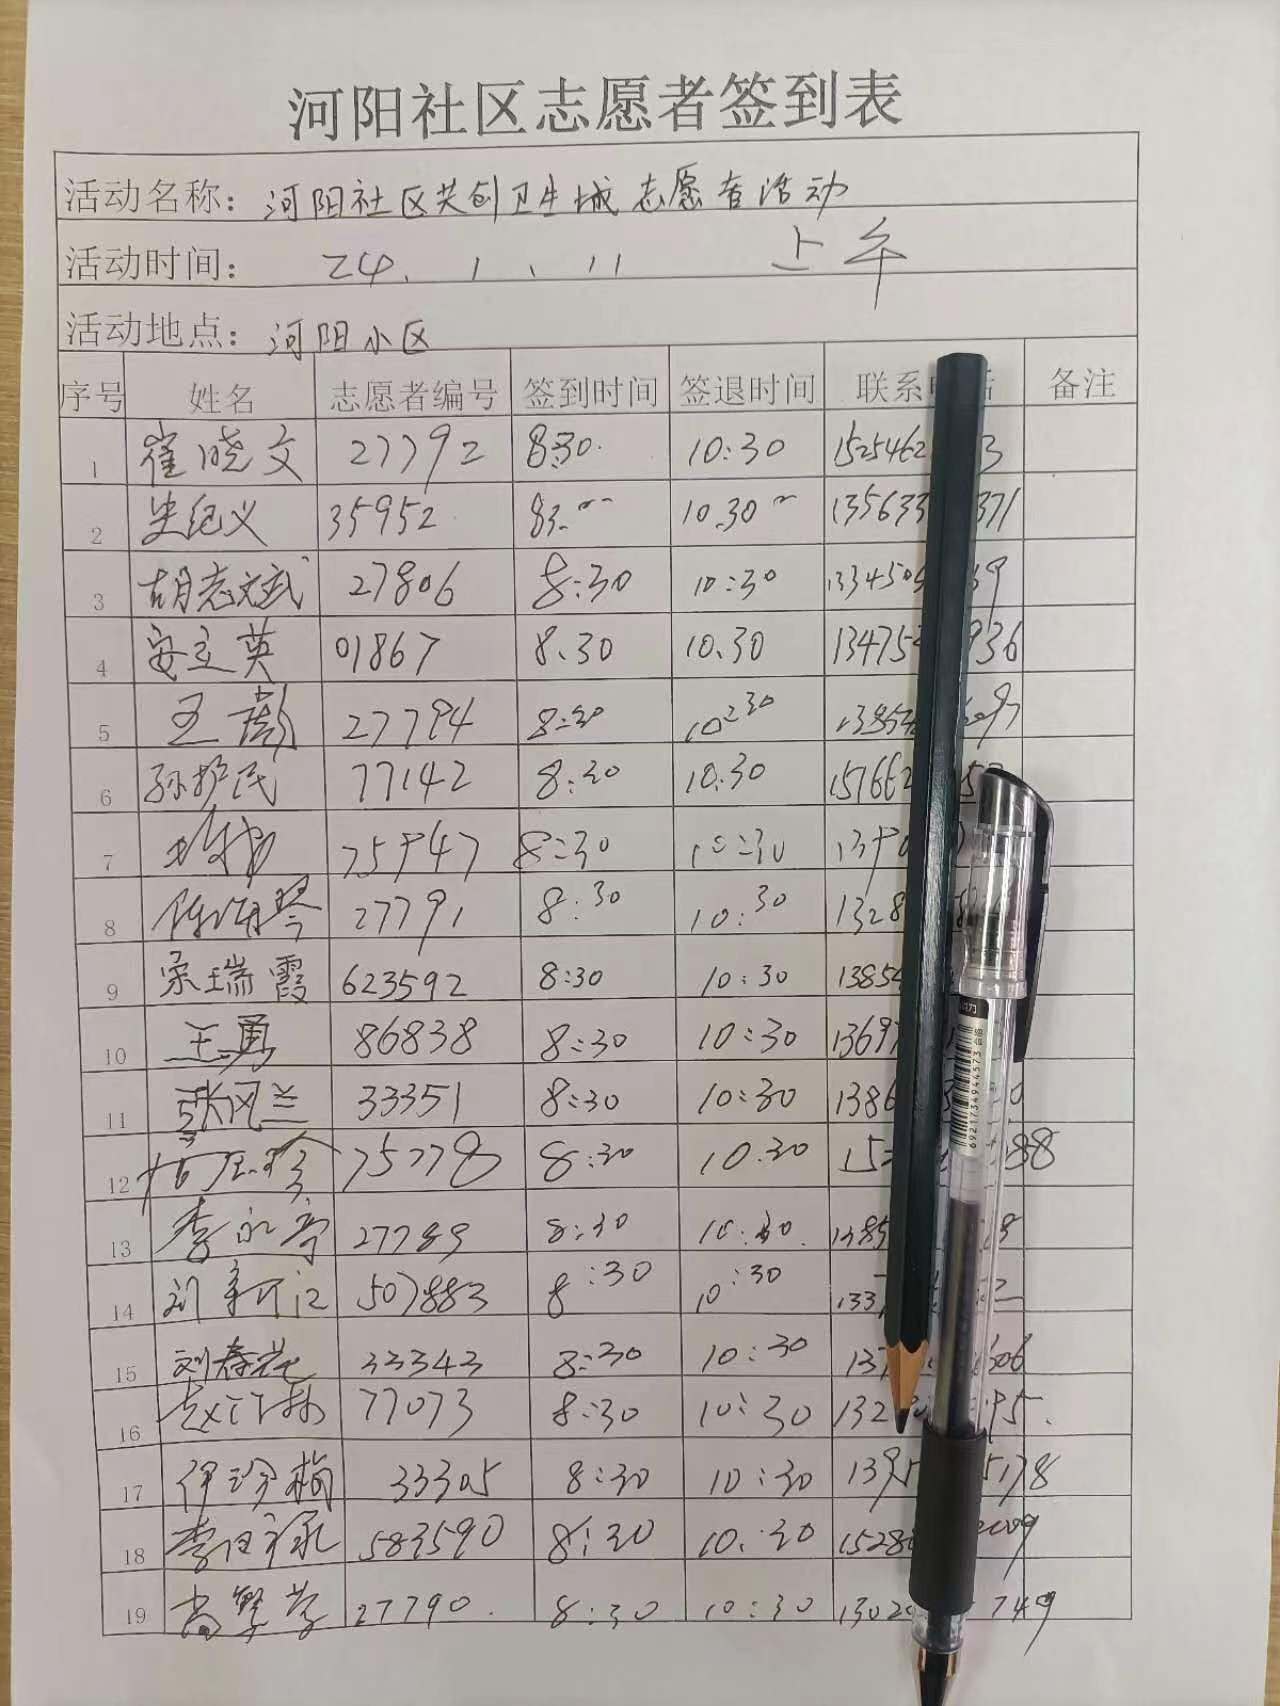 河阳社区志愿者签到表
活动名称：河阳社区共创卫生城志愿者活动
活动时间：24.1.11 上午
活动地点：河阳小区
序号 姓名 志愿者编号 签到时间 签退时间 联系 备注
1 崔晓文 27792 8:30. 10:30 1525462 3
2 史纪义 35952 83. 10.30 135633 371
3 胡志斌 27806 8:30 10:30 1334505 69
4 安立英 01867 8.30 10.30 134753 936
5 王 27794 8:30 10:30 13854 97
6 孙护民 77142 8:30 10:30 157662 5
7 75947 8:30 10:30 1390
8 陈海琴 27791 8:30 10:30 1328
9 宋瑞霞 623592 8:30 10:30 13854
10 王勇 86838 8:30 10:30 1369
11 张风兰 33351 8:30 10:30 1386 0
12 75778 8:30 10.30 15 88
13 李永亭 27789 8:30 10:30 1385 8
14 刘 507883 8:30 10:30 133
15 刘春花 33343 8:30 10:30 137 606
16 赵 林 77073 8:30 10:30 132 95.
17 伊珍梅 33305 8:30 10:30 139 5178
18 李 583590 8:30 10:30 1528 09
19 高 27790. 8:30 10:30 1302 749
6921734944573